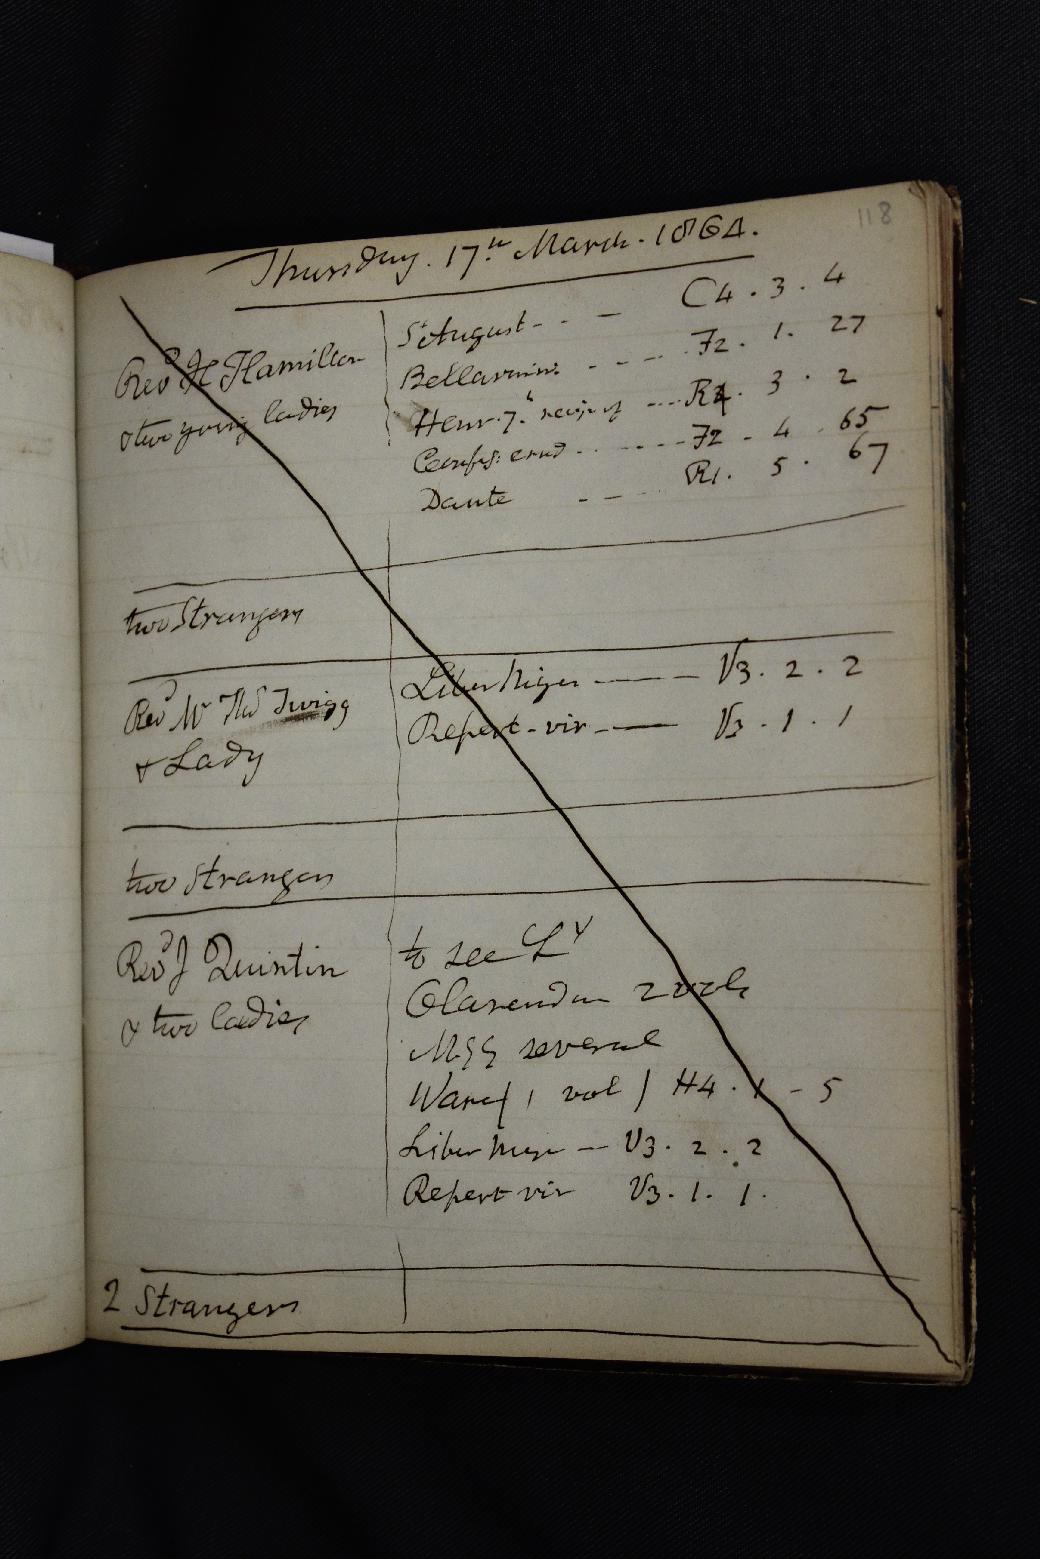 118
Thursday. 17th March. 1864.
Revd H Hamilton
& two young ladies
St August - - - C4. 3. 4
Bellarmin: - - - F2. 1. 27
Henr. 7. --- R4. 3. 2
Confes: --- F2 - 4. 65
Dante - - - R1. 5. 67
two Strangers
Revd Mr Thos Twigg
& Lady
Liber Niger ——— V3. 2. 2
Repert - vir - —— V3. 1. 1
two strangers
Revd J Quintin
& two ladies
to see Ly
Clarendon 2 vols
MSS several
Ware ( 1 vol ) H4. 1 - 5
Liber Niger — V3. 2. 2
Repert vir V3. 1. 1.
2 Strangers